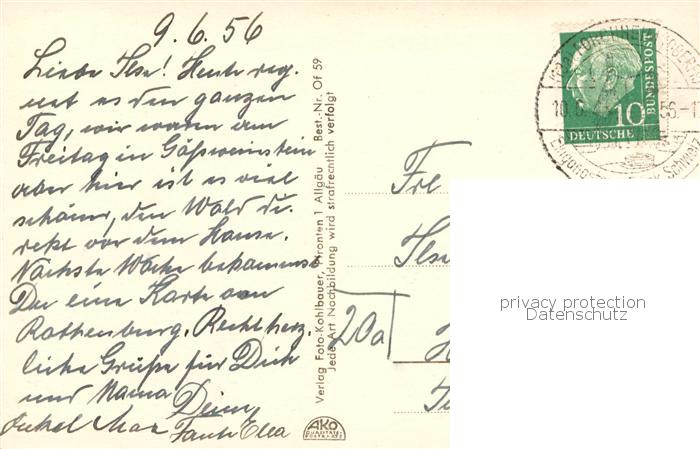 9.6.56
Liebe Ilse! Heute reg-
net es den ganzen
Tag, wir waren am
Freitag in Gößweinstein
aber hier ist es viel
schöner, den Wald di-
rekt vor dem Hause.
Nächste Woche bekommst
Du eine Karte von
Rothenburg. Recht herz-
liche Grüße für Dich
und Mama Deine
Onkel Max Tante Ella
Verlag Foto-Kohlbauer, Pfronten 1 Allgäu Best.-Nr. Of 59
Jede Art Nachbildung wird strafrechtlich verfolgt
AKO
QUALITÄTS-
POSTKARTE
10
DEUTSCHE
BUNDESPOST
Frl
Ilse
20a
privacy protection
Datenschutz